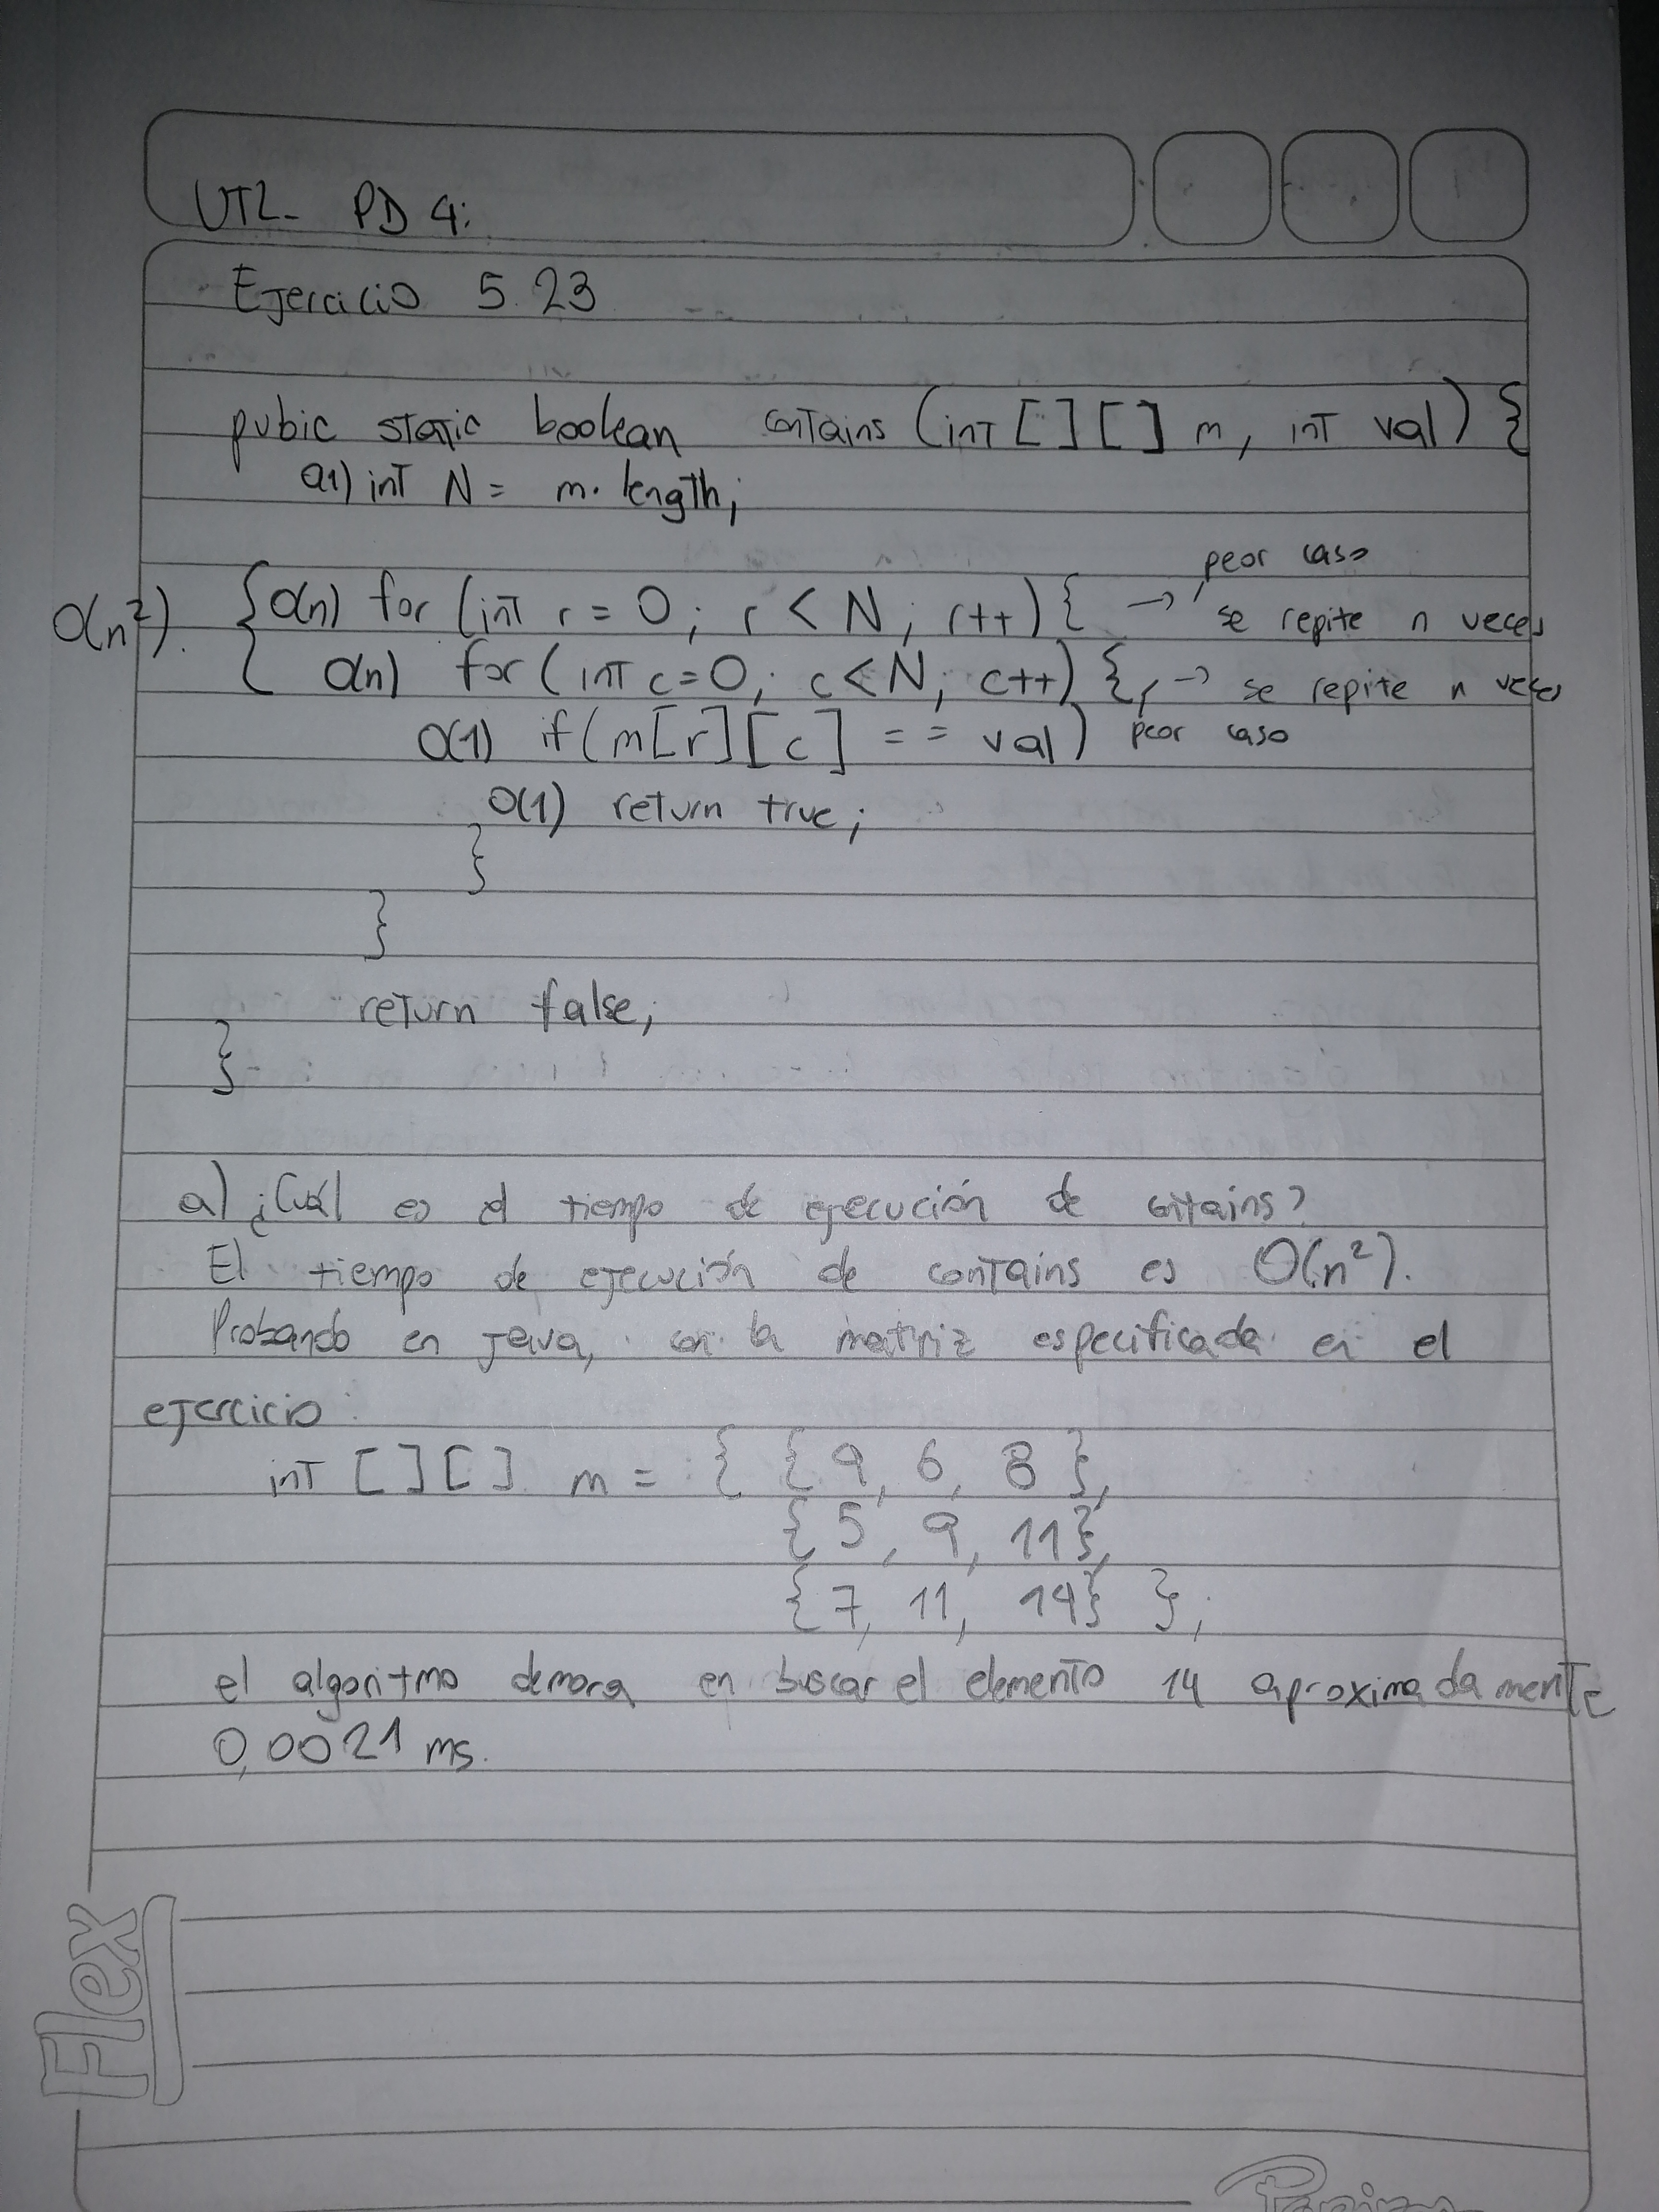 UT2- PD 4:
Ejercicio 5.23
pubic static boolean contains (int [] [] m, int val) {
O(1) int N = m.length;
peor caso
O(n²). { O(n) for (int r = 0; r < N; r++) { → se repite n veces
O(n) for (int c=0; c<N; c++) { → se repite n veces
O(1) if (m[r][c] == val) peor caso
O(1) return true;
}
}
return false;
}
a) ¿Cuál es el tiempo de ejecución de contains?
El tiempo de ejecución de contains es O(n²).
Probando en Java, con la matriz especificada en el
ejercicio:
int [] [] m = { { 9, 6, 8 },
{ 5, 9, 11},
{ 7, 11, 14} };
el algoritmo demora en buscar el elemento 14 aproximadamente
0,0021 ms.
Flex